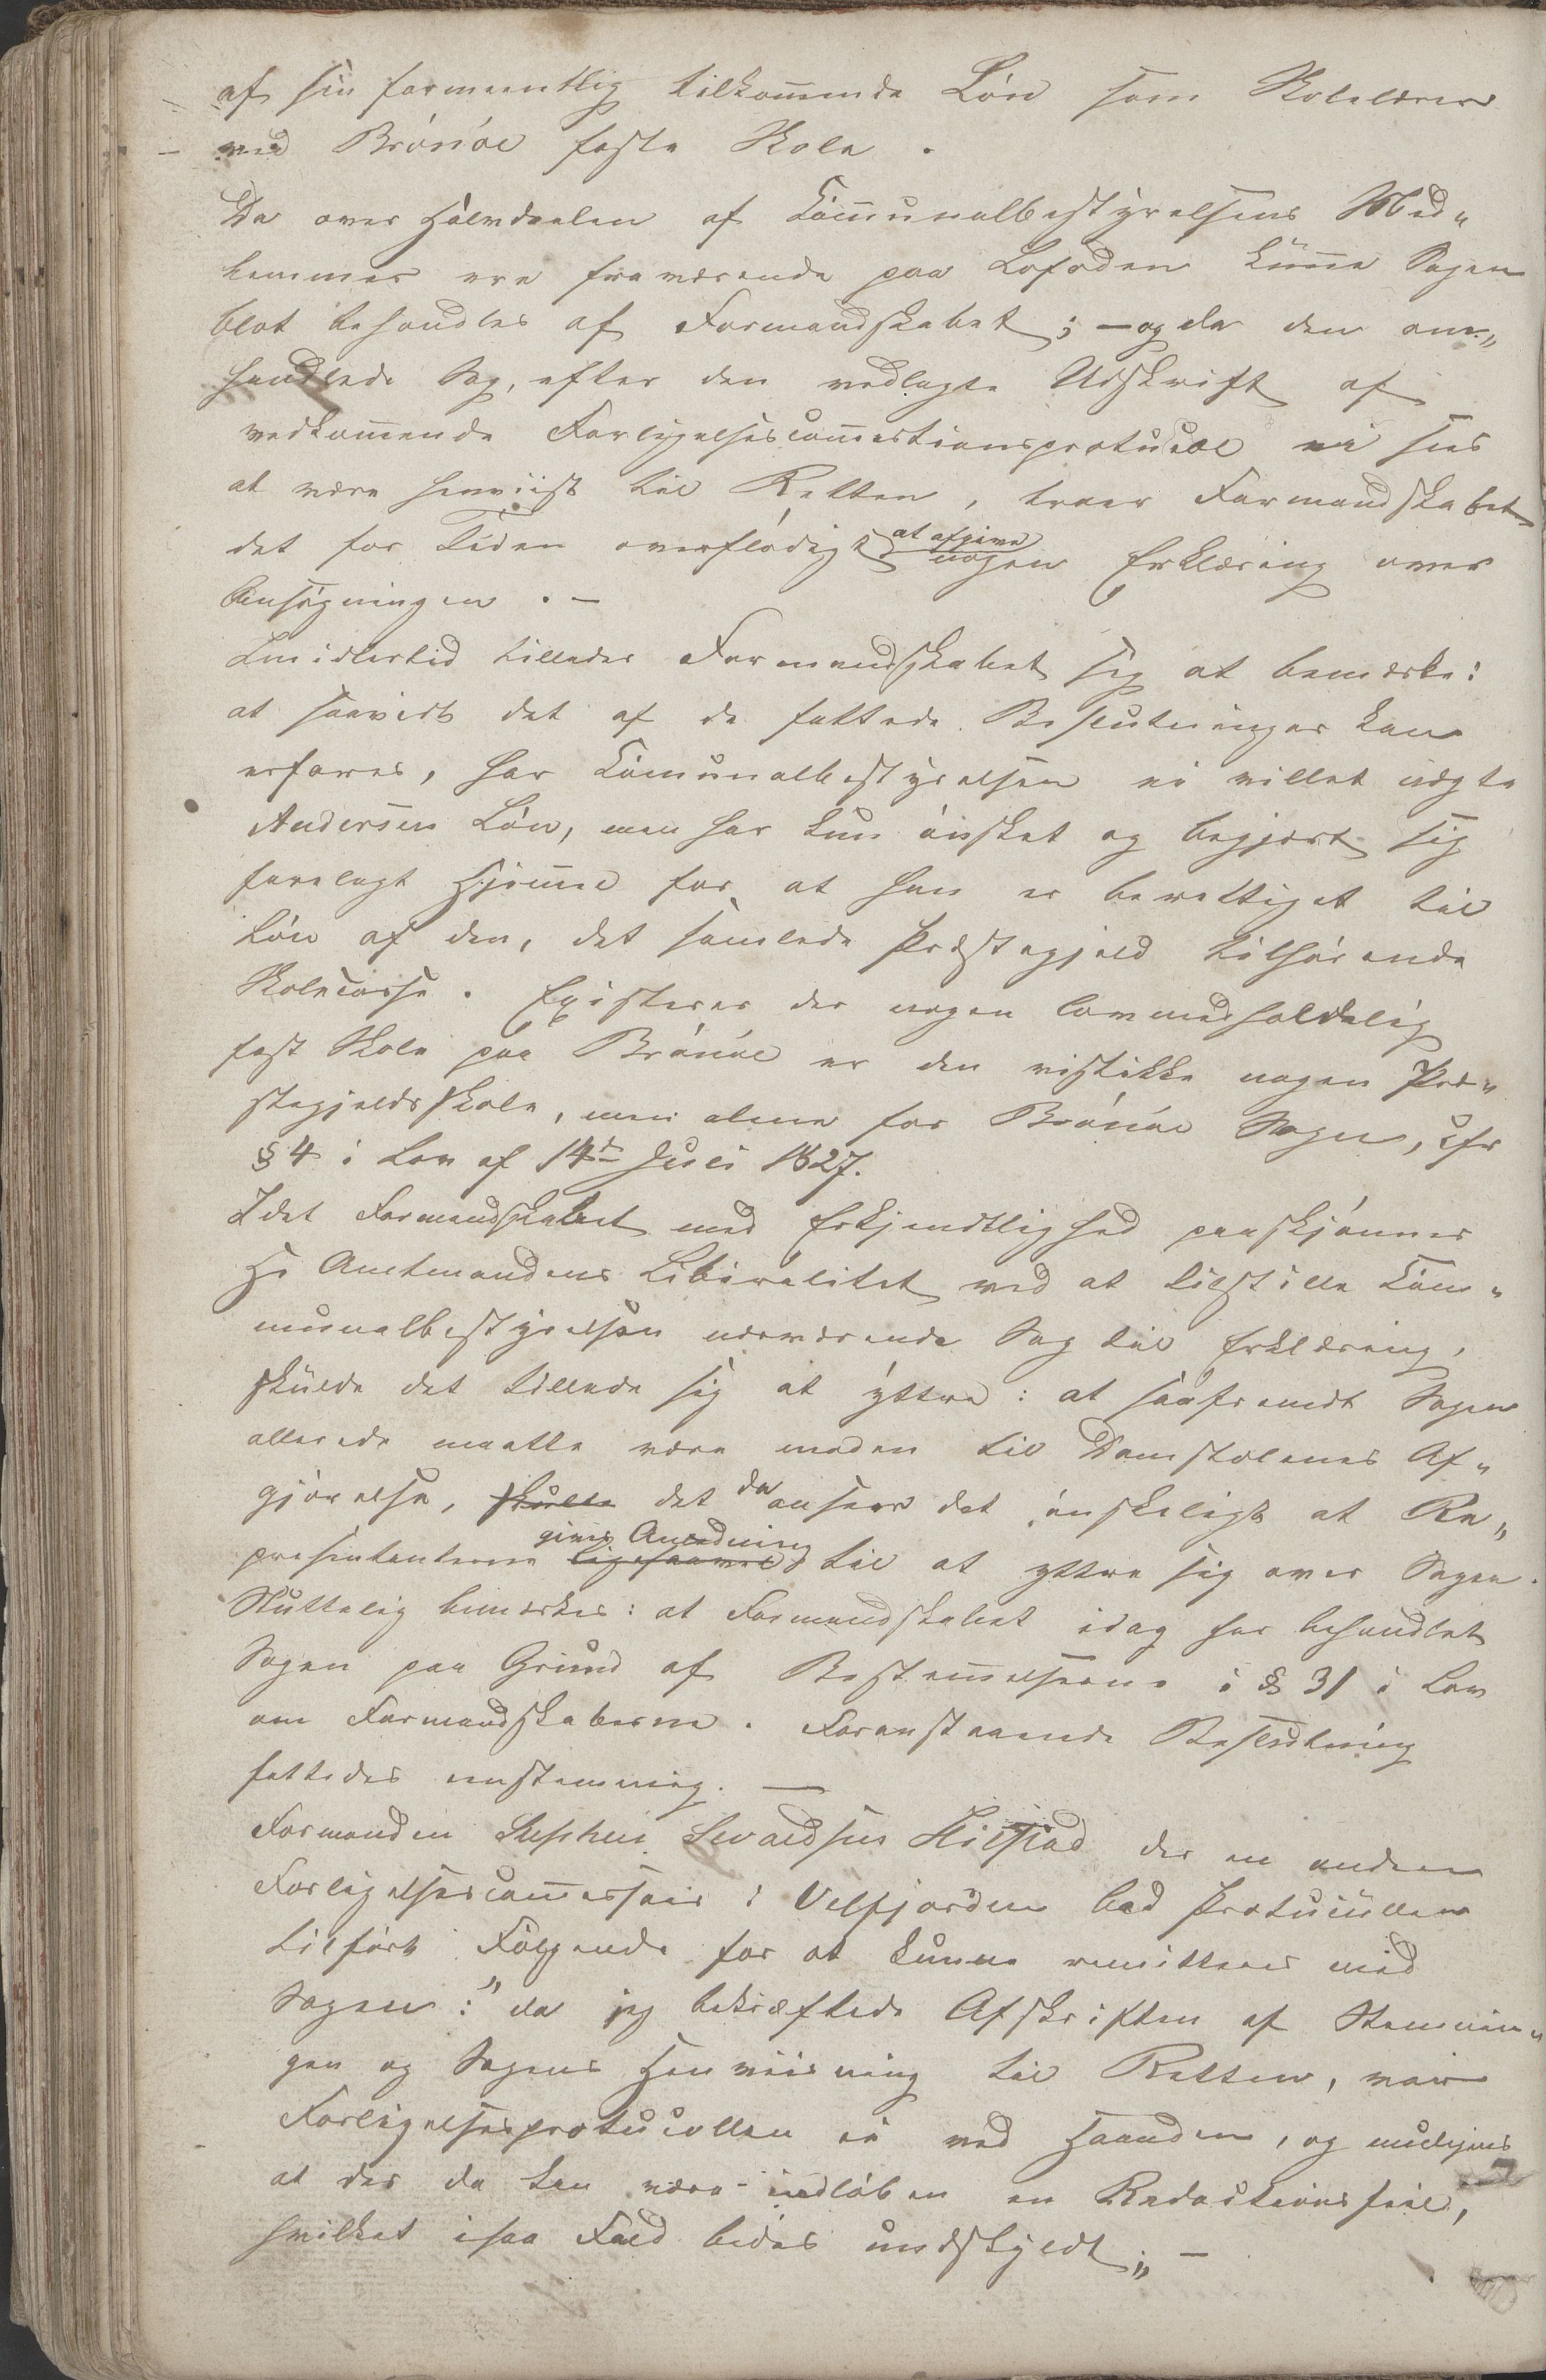 af sin formeentlig tilkommende Løn som Skolelærer
ved Brønøe faste Skole.
Da over Halvdeelen af Communalbestyrelsens Med„
lemmer ere fraværende paa Lofoden kunne Sagen
blot behandles af Formandskabet; – og da den om„
handlede Sag, efter den vedlagte Udskrift af
vedkommende Forligelsescommissionsprotucol ei sees
at være henviist til Retten, troer Formandskabet
det for Tiden overflødigt at afgive nogen Erklæring over
Ansøgningen. –
Imidlertid tillader Formandskabet sig at bemærke:
at saavidt det af de fattede Beslutninger kan
erfares, har Communalbestyrelsen ei villet nægte
Andersen Løn, men har kun ønsket og begjært sig
forelagt Hjemmel for at han er berettiget til
Løn af den, det samlede Præstegjeld tilhørende
Skolecasse. Existerer der nogen lovmedholdelig
fast Skole paa Brønøe er den vistikke nogen Præ„
stegjeldsskole, men alene for Brønøe Sogn, cfr
§ 4 i Lov af 14de Juli 1827.
Idet Formandskabet med Erkjendtlighed paaskjønner
Hr Amtmandens Liberalitet ved at tilstille Com„
munalbestyrelsen nærværende Sag til Erklæring,
skulde det tillade sig at yttre: at saafremdt Sagen
allerede maatte være moden til Domstolenes Af„
gjørelse, skulle det da ansees det ønskeligt at Re„
presentanterne ligesaavel gives Anledning til at yttre sig over Sagen.
Sluttelig bemærkes: at Formandskabet idag har behandlet
Sagen paa Grund af Bestemmelserne i § 31 i Lov
om Formandskaberne. Foranstaaende Beslutning
fattedes eenstemmig. –
Formanden Stephen Sivaldsen Hilstad der en anden
Forligelsescommissair i Velfjorden bad Protucullen
tilført Følgende for at kunne remitteres med
Sagen: „da jeg bekræftede Afskriften af Stevnin„
gen og Sagens Henviisning til Retten, var
Forligelsesprotucollen ei ved Haanden, og muligens
at der da kan være indløben en Redactionsfeil,
hvilket isaa Fald bedes undskyldt„; –